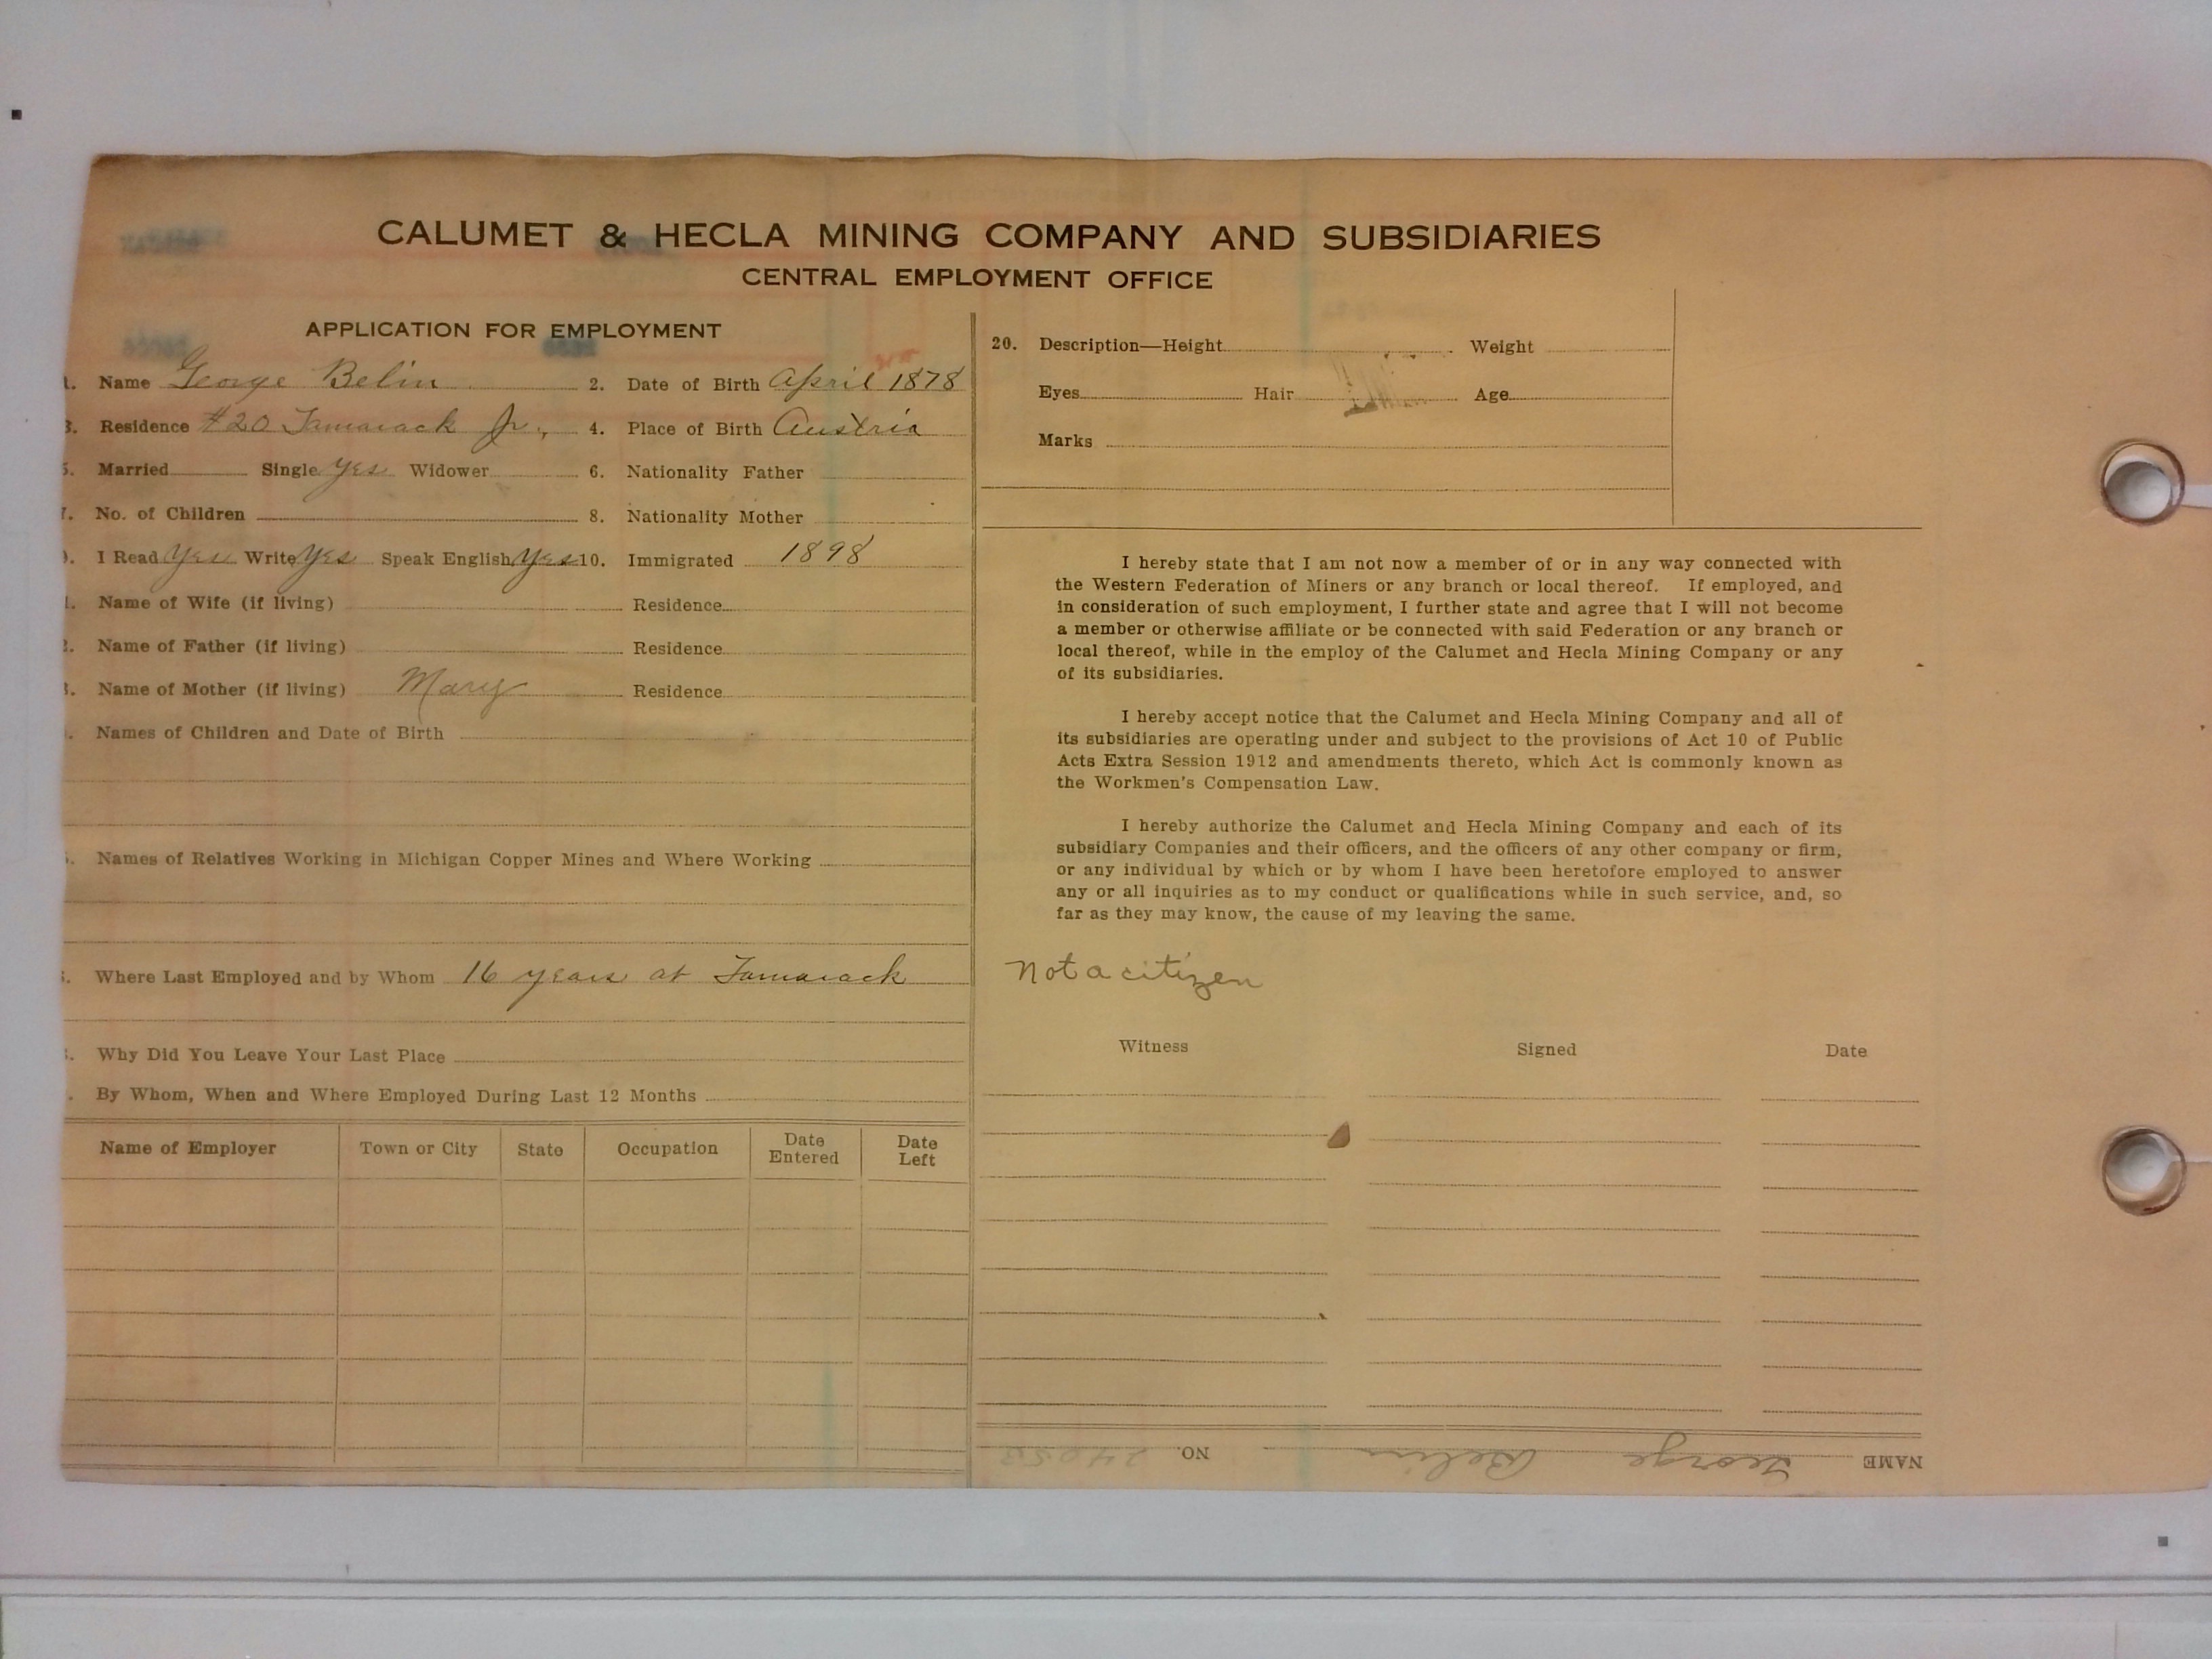 CALUMET & HECLA MINING COMPANY AND SUBSIDIARIES
CENTRAL EMPLOYMENT OFFICE
APPLICATION FOR EMPLOYMENT
1. Name George Belin 2. Date of Birth April 1878
3. Residence #20 Tamarack Jr., 4. Place of Birth Austria
5. Married Single Yes Widower 6. Nationality Father
7. No. of Children 8. Nationality Mother
9. I Read Yes Write Yes Speak English Yes 10. Immigrated 1898
1. Name of Wife (if living) Residence
2. Name of Father (if living) Residence
3. Name of Mother (if living) Mary Residence
. Names of Children and Date of Birth
. Names of Relatives Working in Michigan Copper Mines and Where Working
. Where Last Employed and by Whom 16 years at Tamarack
. Why Did You Leave Your Last Place
. By Whom, When and Where Employed During Last 12 Months
Name of Employer Town or City State Occupation Date Entered Date Left
20. Description—Height Weight
Eyes Hair Age
Marks
I hereby state that I am not now a member of or in any way connected with
the Western Federation of Miners or any branch or local thereof. If employed, and
in consideration of such employment, I further state and agree that I will not become
a member or otherwise affiliate or be connected with said Federation or any branch or
local thereof, while in the employ of the Calumet and Hecla Mining Company or any
of its subsidiaries.
I hereby accept notice that the Calumet and Hecla Mining Company and all of
its subsidiaries are operating under and subject to the provisions of Act 10 of Public
Acts Extra Session 1912 and amendments thereto, which Act is commonly known as
the Workmen's Compensation Law.
I hereby authorize the Calumet and Hecla Mining Company and each of its
subsidiary Companies and their officers, and the officers of any other company or firm,
or any individual by which or by whom I have been heretofore employed to answer
any or all inquiries as to my conduct or qualifications while in such service, and, so
far as they may know, the cause of my leaving the same.
Not a citizen
Witness Signed Date
NAME George Belin NO.